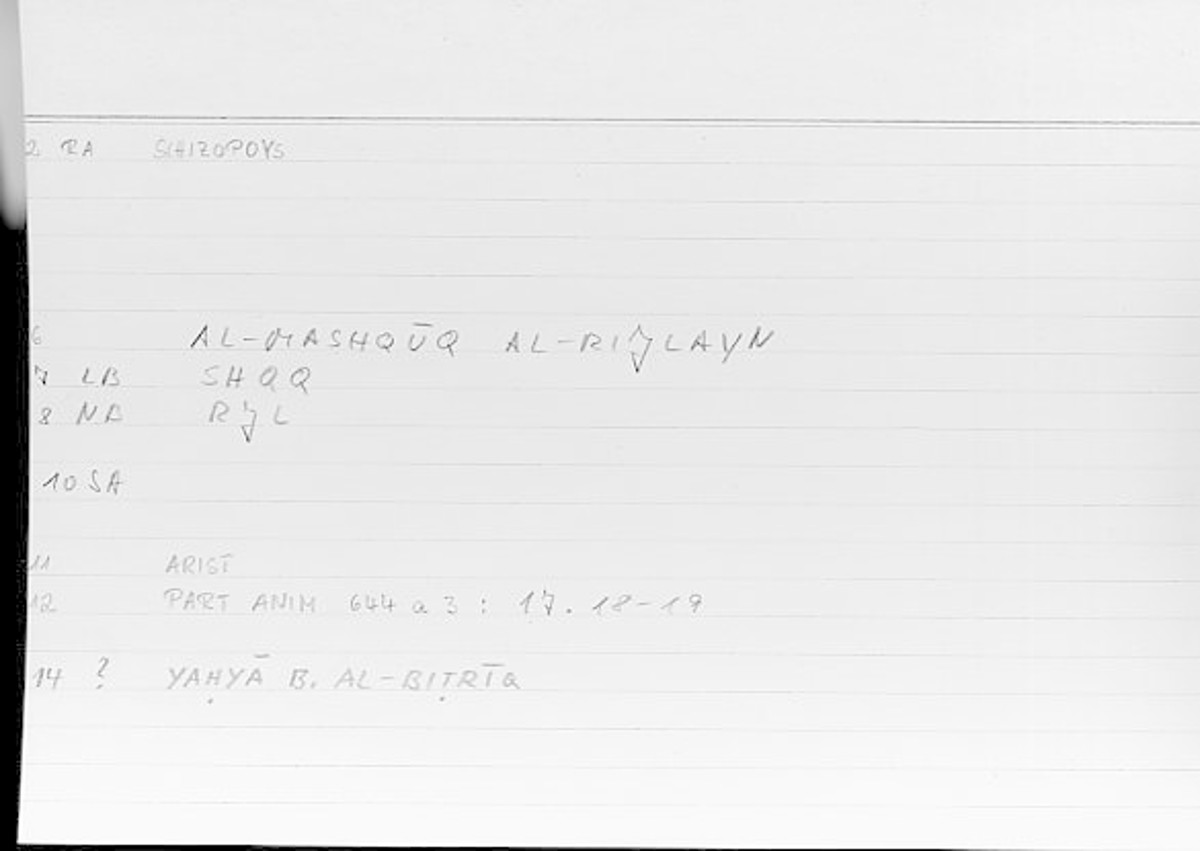 2 RA SCHIZOPOYS
6 AL-MASHQŪQ AL-RIJLAYN
7 LB SHQQ
8 NA RJL
10 SA
11 ARIST
12 PART ANIM 644 a 3 : 17. 18-19
14 ? YAḤYĀ B. AL-BIṬRĪQ